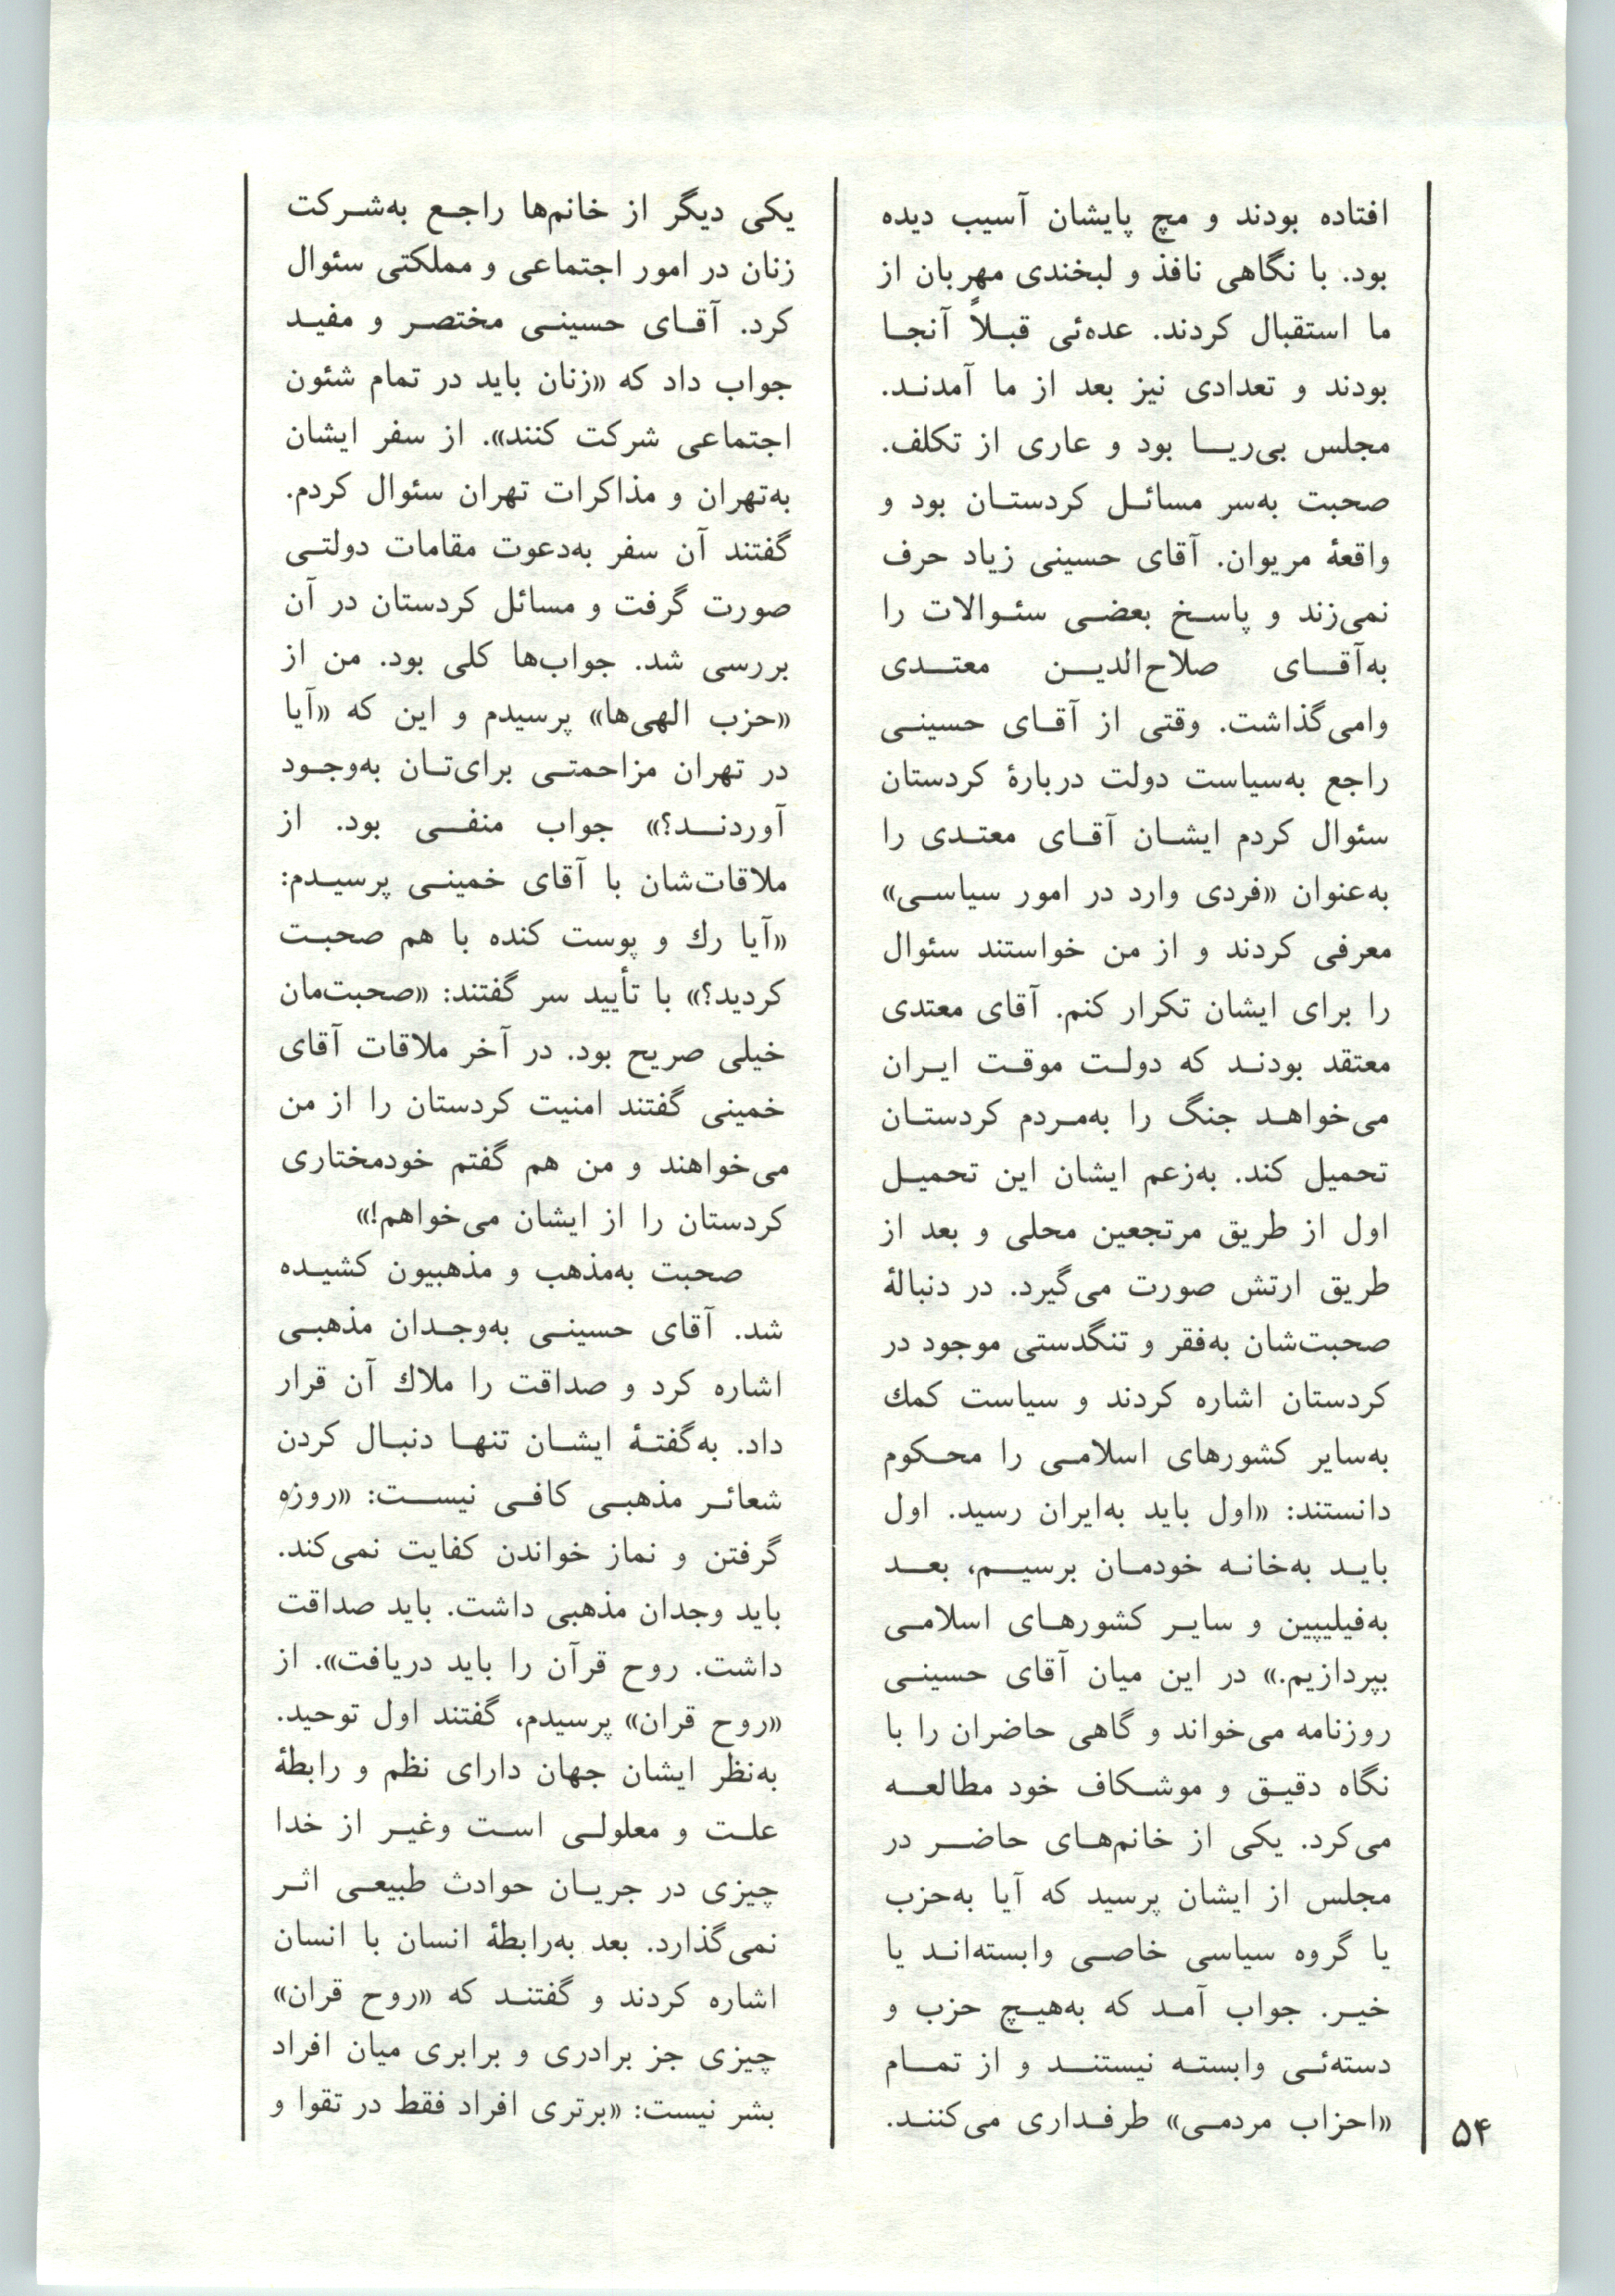 افتاده بودند و مچ پایشان آسیب دیده
بود. با نگاهی نافذ و لبخندی مهربان از
ما استقبال کردند. عده‌ئی قبلاً آنجا
بودند و تعدادی نیز بعد از ما آمدند.
مجلس بی‌ریا بود و عاری از تکلف.
صحبت به‌سر مسائل کردستان بود و
واقعهٔ مریوان. آقای حسینی زیاد حرف
نمی‌زند و پاسخ بعضی سئوالات را
به‌آقای صلاح‌الدین معتدی
وامی‌گذاشت. وقتی از آقای حسینی
راجع به‌سیاست دولت دربارهٔ کردستان
سئوال کردم ایشان آقای معتدی را
به‌عنوان «فردی وارد در امور سیاسی»
معرفی کردند و از من خواستند سئوال
را برای ایشان تکرار کنم. آقای معتدی
معتقد بودند که دولت موقت ایران
می‌خواهد جنگ را به‌مردم کردستان
تحمیل کند. به‌زعم ایشان این تحمیل
اول از طریق مرتجعین محلی و بعد از
طریق ارتش صورت می‌گیرد. در دنبالهٔ
صحبت‌شان به‌فقر و تنگدستی موجود در
کردستان اشاره کردند و سیاست کمك
به‌سایر کشورهای اسلامی را محکوم
دانستند: «اول باید به‌ایران رسید. اول
باید به‌خانه خودمان برسیم، بعد
به‌فیلیپین و سایر کشورهای اسلامی
بپردازیم.» در این میان آقای حسینی
روزنامه می‌خواند و گاهی حاضران را با
نگاه دقیق و موشکاف خود مطالعه
می‌کرد. یکی از خانم‌های حاضر در
مجلس از ایشان پرسید که آیا به‌حزب
یا گروه سیاسی خاصی وابسته‌اند یا
خیر. جواب آمد که به‌هیچ حزب و
دسته‌ئی وابسته نیستند و از تمام
«احزاب مردمی» طرفداری می‌کنند.
یکی دیگر از خانم‌ها راجع به‌شرکت
زنان در امور اجتماعی و مملکتی سئوال
کرد. آقای حسینی مختصر و مفید
جواب داد که «زنان باید در تمام شئون
اجتماعی شرکت کنند». از سفر ایشان
به‌تهران و مذاکرات تهران سئوال کردم.
گفتند آن سفر به‌دعوت مقامات دولتی
صورت گرفت و مسائل کردستان در آن
بررسی شد. جواب‌ها کلی بود. من از
«حزب الهی‌ها» پرسیدم و این که «آیا
در تهران مزاحمتی برای‌تان به‌وجود
آوردند؟» جواب منفی بود. از
ملاقات‌شان با آقای خمینی پرسیدم:
«آیا رك و پوست کنده با هم صحبت
کردید؟» با تأیید سر گفتند: «صحبت‌مان
خیلی صریح بود. در آخر ملاقات آقای
خمینی گفتند امنیت کردستان را از من
می‌خواهند و من هم گفتم خودمختاری
کردستان را از ایشان می‌خواهم!»
صحبت به‌مذهب و مذهبیون کشیده
شد. آقای حسینی به‌وجدان مذهبی
اشاره کرد و صداقت را ملاك آن قرار
داد. به‌گفتهٔ ایشان تنها دنبال کردن
شعائر مذهبی کافی نیست: «روزه
گرفتن و نماز خواندن کفایت نمی‌کند.
باید وجدان مذهبی داشت. باید صداقت
داشت. روح قرآن را باید دریافت». از
«روح قران» پرسیدم، گفتند اول توحید.
به‌نظر ایشان جهان دارای نظم و رابطهٔ
علت و معلولی است وغیر از خدا
چیزی در جریان حوادث طبیعی اثر
نمی‌گذارد. بعد به‌رابطهٔ انسان با انسان
اشاره کردند و گفتند که «روح قران»
چیزی جز برادری و برابری میان افراد
بشر نیست: «برتری افراد فقط در تقوا و
۵۴